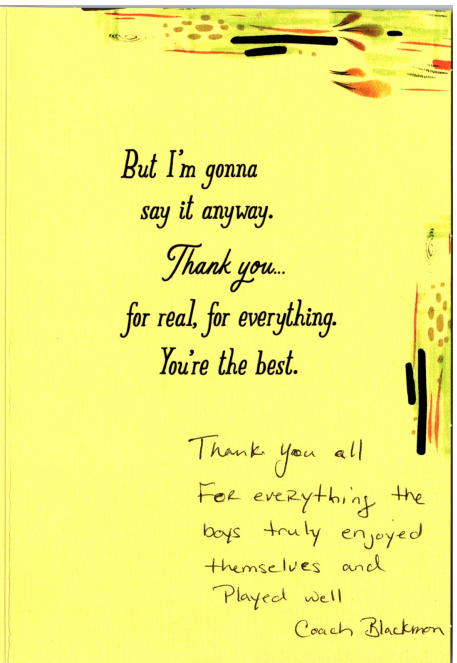 But I'm gonna
say it anyway.
Thank you...
for real, for everything.
You're the best.
Thank you all
For everything the
boys truly enjoyed
themselves and
Played well
Coach Blackmon